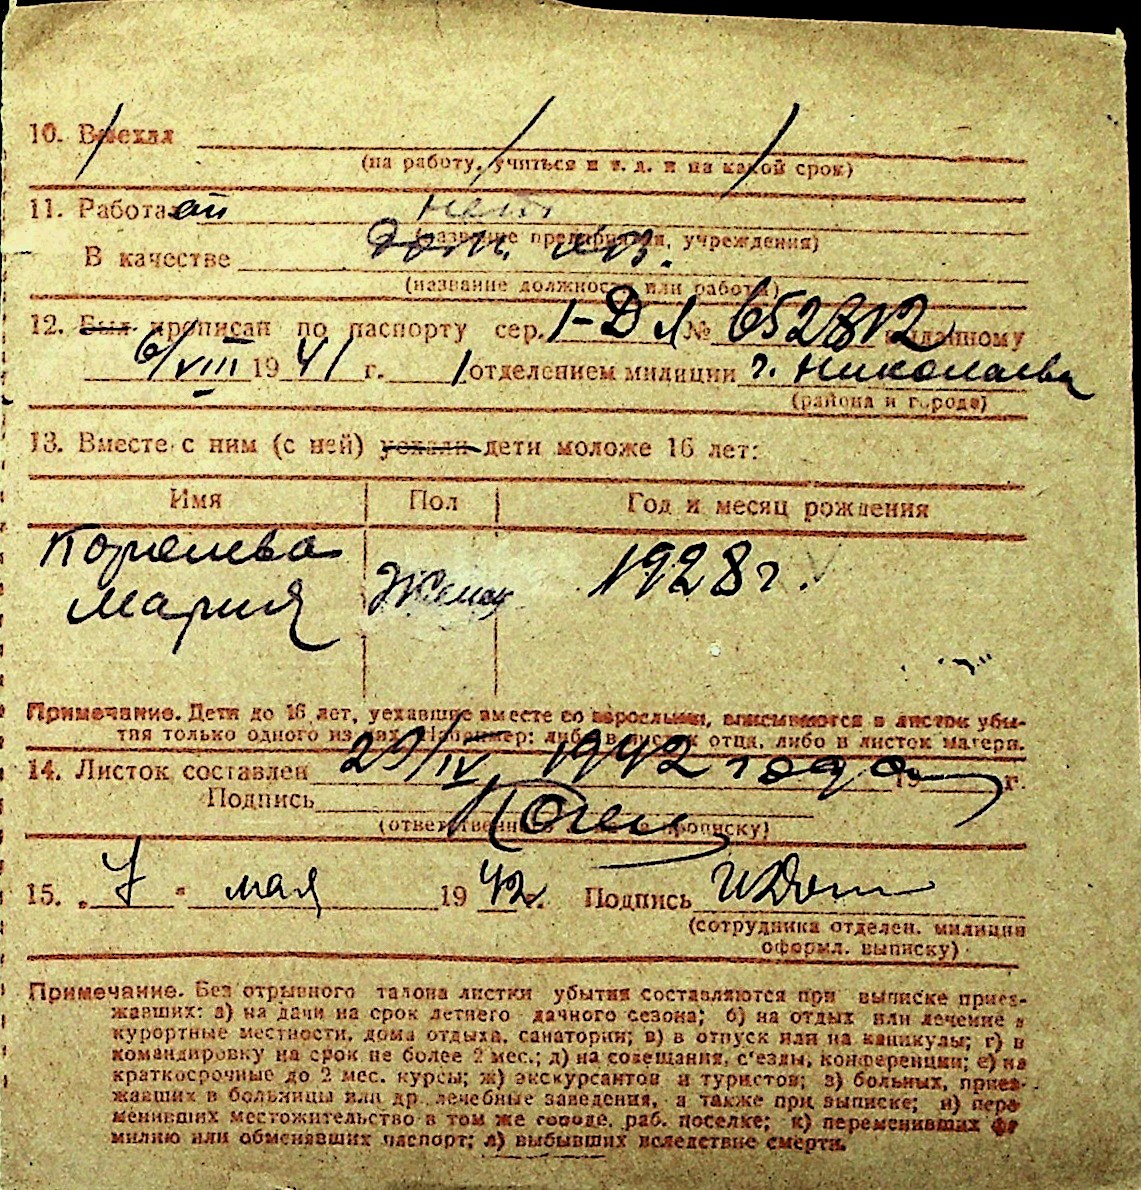 10. Выехал
(на работу, учиться и т. д. и на какой срок)
11. Работает нет
(название предприятия, учреждения)
В качестве дом. хоз.
(название должности или работы)
12. Был прописан по паспорту сер. I-Дл № 652812 выданному
6/VIII 1941 г. 1 отделением милиции г. Николаева
(района и города)
13. Вместе с ним (с ней) уехали дети моложе 16 лет:
Имя Пол Год и месяц рождения
Мария Женск 1928 г.
Примечание. Дети до 16 лет, уехавшие вместе со взрослыми, вписываются в листок убы-
тия только одного из них. Например: либо в листок отца, либо в листок матери.
14. Листок составлен 29/IV 1942 года 19 г.
Подпись
(ответственного за прописку)
15. „7" мая 1942 г. Подпись
(сотрудника отделен. милиции
оформл. выписку)
Примечание. Без отрывного талона листки убытия составляются при выписке приез-
жавших: а) на дачи на срок летнего дачного сезона; б) на отдых или лечение в
курортные местности, дома отдыха, санатории; в) в отпуск или на каникулы; г) в
командировку на срок не более 2 мес.; д) на совещания, с'езды, конференции; е) на
краткосрочные до 2 мес. курсы; ж) экскурсантов и туристов; з) больных, приез-
жавших в больницы или др. лечебные заведения, а также при выписке; и) пере-
менивших местожительство в том же городе, раб. поселке; к) переменивших фа-
милию или обменявших паспорт; л) выбывших вследствие смерти.